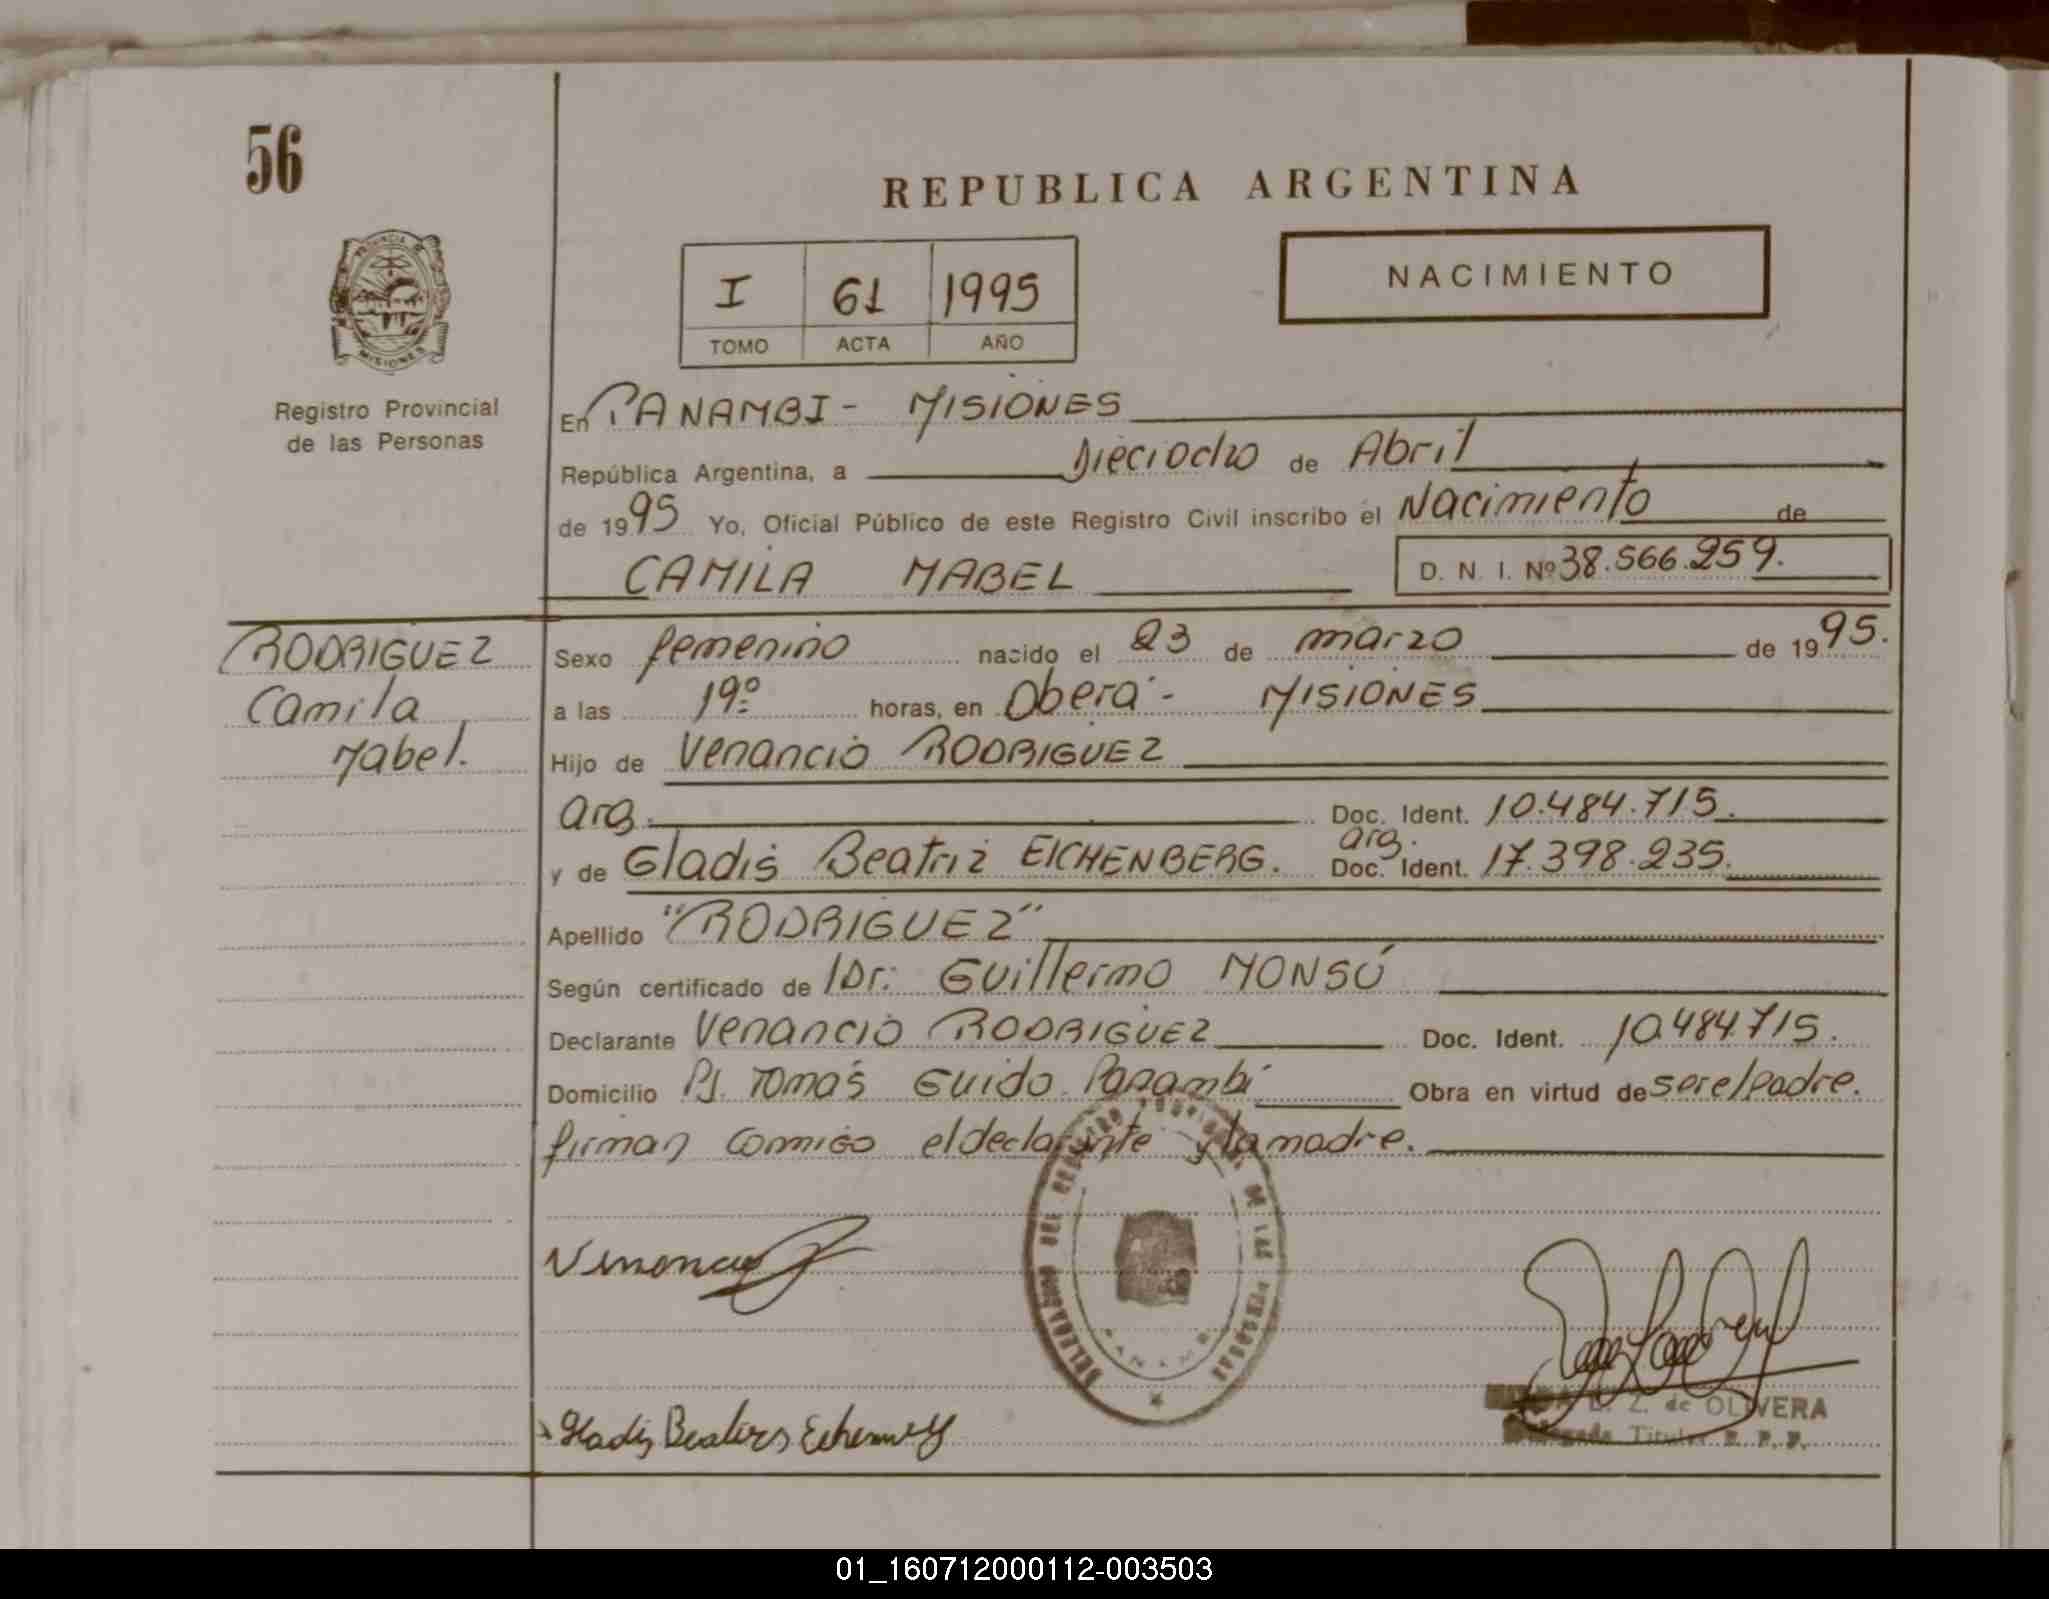 56
REPUBLICA ARGENTINA
NACIMIENTO
I 61 1995
TOMO ACTA AÑO
PROVINCIA DE
MISIONES
Registro Provincial
de las Personas
En PANAMBI - MISIONES
República Argentina, a Dieciocho de Abril
de 1995 Yo, Oficial Público de este Registro Civil inscribo el Nacimiento de
CAMILA MABEL D. N. I. Nº 38.566.259.
RODRIGUEZ
Camila
Mabel.
Sexo femenino nacido el 23 de marzo de 1995.
a las 19º horas, en Oberá - MISIONES
Hijo de Venancio RODRIGUEZ
arg. Doc. Ident. 10.484.715.
arg.
y de Gladis Beatriz EICHENBERG. Doc. Ident. 17.398.235.
Apellido "RODRIGUEZ"
Según certificado de Dr. Guillermo MONSÚ
Declarante Venancio RODRIGUEZ Doc. Ident. 10.484.715.
Domicilio Pj. Tomás Guido. Panambí Obra en virtud de ser el padre.
firman conmigo el declarante y la madre.
DELEGACION DEL REGISTRO PROVINCIAL DE LAS PERSONAS
PANAMBI
Gladis Beatriz
L. Z. de OLIVERA
Delegada Titular R. P. P.
01_160712000112-003503